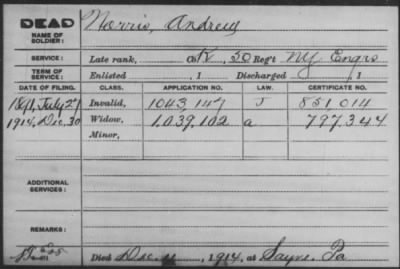 DEAD Norris, Andrew
NAME OF
SOLDIER:
SERVICE: Late rank, Co. K, 50 Reg't NY Engrs
TERM OF
SERVICE: Enlisted , 1 Discharged , 1
DATE OF FILING. CLASS. APPLICATION NO. LAW. CERTIFICATE NO.
1891, July 27 Invalid, 1043147 J 851,014
1914, Dec. 30 Widow, 1.039.102 a 797.344
Minor,
ADDITIONAL
SERVICES:
REMARKS:
Died Dec. 11, 1914, at Sayre, Pa